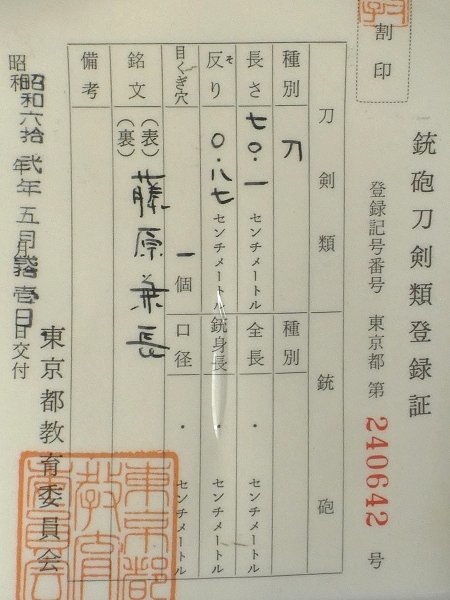 割印
銃砲刀剣類登録証
登録記号番号 東京都 第 240642 号
刀剣類 銃砲
種別 刀 種別
長さ 七〇・一 センチメートル 全長 ・ センチメートル
反り そ 〇・八七 センチメートル 銃身長 ・ センチメートル
目くぎ穴 一個 口径 ・ センチメートル
銘文 (表) 藤原兼長
(裏)
備考
昭和
昭和六拾弐年五月 壱日
日交付
東京都教育委員会
東京都
教育